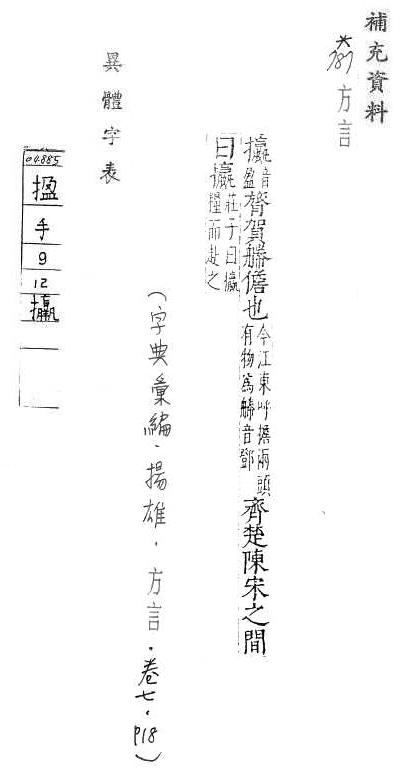 補充資料
方言
攍音盈膂賀儋也今江東呼擔兩頭
有物為音鄧齊楚陳宋之間
曰攍莊子曰攍
糧而赴之
異體字表
(字典彙編.揚雄.方言.卷七.P18)
04885
㨕
手
9
12
攍